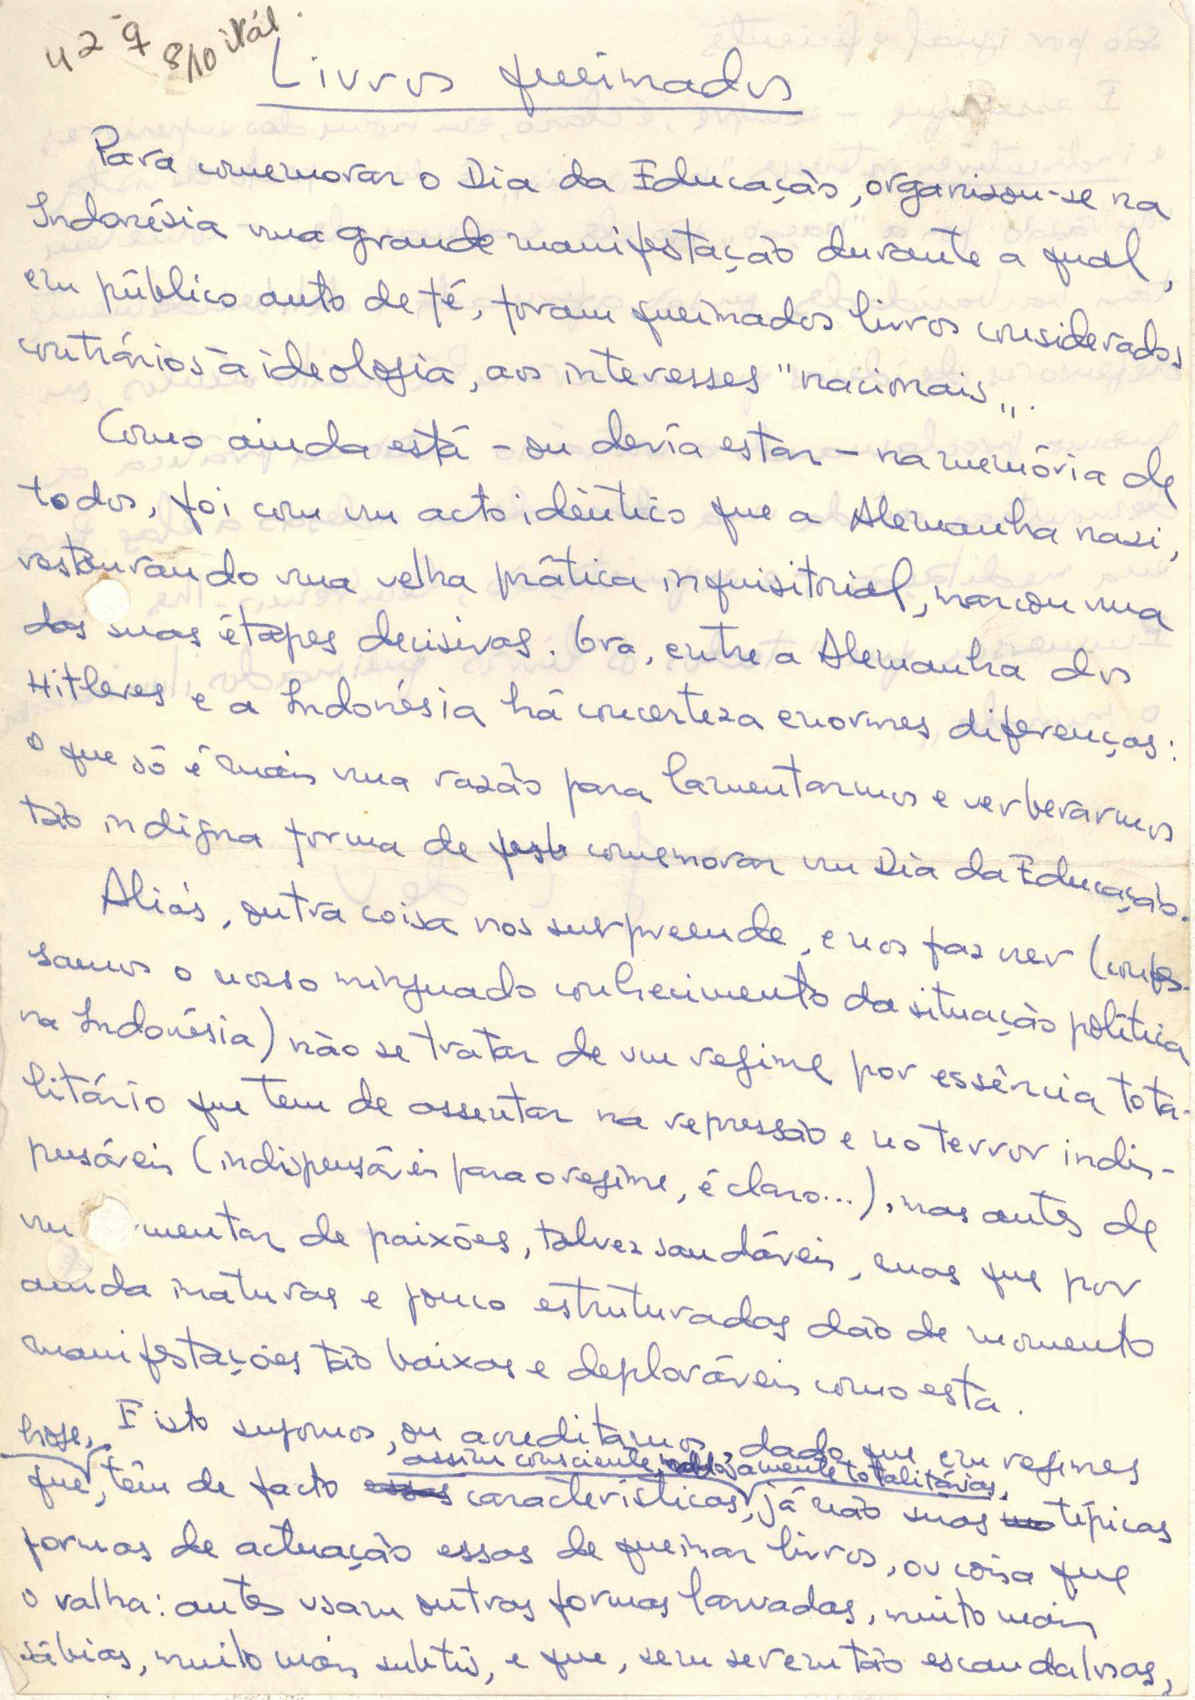 42-9 8/10 itál.
Livros queimados
Para comemorar o Dia da Educação, organizou-se na
Indonésia uma grande manifestação durante a qual,
em público auto de fé, foram queimados livros considerados
contrários à ideologia, aos interesses "nacionais".
Como ainda está - ou devia estar - na memória de
todos, foi com um acto idêntico que a Alemanha nazi,
restaurando uma velha prática inquisitorial, marcou uma
das suas étapes decisivas. Ora, entre a Alemanha dos
Hitleres e a Indonésia há concerteza enormes diferenças:
o que só é mais uma razão para lamentarmos e verberarmos
tão indigna forma de comemorar um Dia da Educação.
Aliás, outra coisa nos surpreende, e nos faz ver (confes-
samos o nosso minguado conhecimento da situação política
na Indonésia) não se tratar de um regime por essência tota-
litário que tem de assentar na repressão e no terror indis-
pensáveis (indispensáveis para o regime, é claro...), mas antes de
um mentar de paixões, talvez saudáveis, mas que por
ainda imaturas e pouco estruturadas dão de momento
manifestações tão baixas e deploráveis como esta.
E isto supomos, ou acreditamos, dado que em regimes
hoje,
assim consciente, amente totalitárias,
que, têm de facto características, já não suas típicas
formas de actuação essas de queimar livros, ou coisa que
o valha: antes usam outras formas larvadas, muito mais
sábias, muito mais subtis, e que, sem serem tão escandalosas,